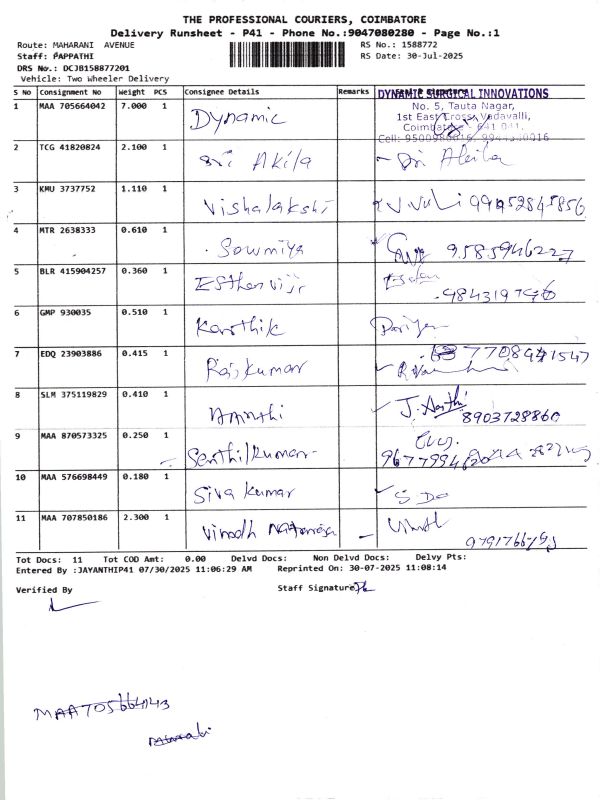 THE PROFESSIONAL COURIERS, COIMBATORE
Delivery Runsheet - P41 - Phone No.:9047080280 - Page No.:1
Route: MAHARANI AVENUE RS No.: 1588772
Staff: PAPPATHI RS Date: 30-Jul-2025
DRS No.: DCJB158877201
Vehicle: Two Wheeler Delivery
S No Consignment No Weight PCS Consignee Details Remarks
DYNAMIC SURGICAL INNOVATIONS
No. 5, Tauta Nagar,
1st East Cross, Vadavalli,
Coimbatore - 641 041.
1 MAA 705664042 7.000 1 Dynamic
2 TCG 41820824 2.100 1 Sri Akila Sri Akila
3 KMU 3737752 1.110 1 Vishalakshi
4 MTR 2638333 0.610 1 Sowmiya 9585946227
5 BLR 415904257 0.360 1 Esther viji
6 GMP 930035 0.510 1 Karthik
7 EDQ 23903886 0.415 1 Rajkumar 7708941547
8 SLM 375119829 0.410 1 Aarthi J. Aarthi 8903728860
9 MAA 870573325 0.250 1 Senthilkumar
10 MAA 576698449 0.180 1 Siva kumar
11 MAA 707850186 2.300 1 Vinodh
Tot Docs: 11 Tot COD Amt: 0.00 Delvd Docs: Non Delvd Docs: Delvy Pts:
Entered By :JAYANTHIP41 07/30/2025 11:06:29 AM Reprinted On: 30-07-2025 11:08:14
Verified By Staff Signature